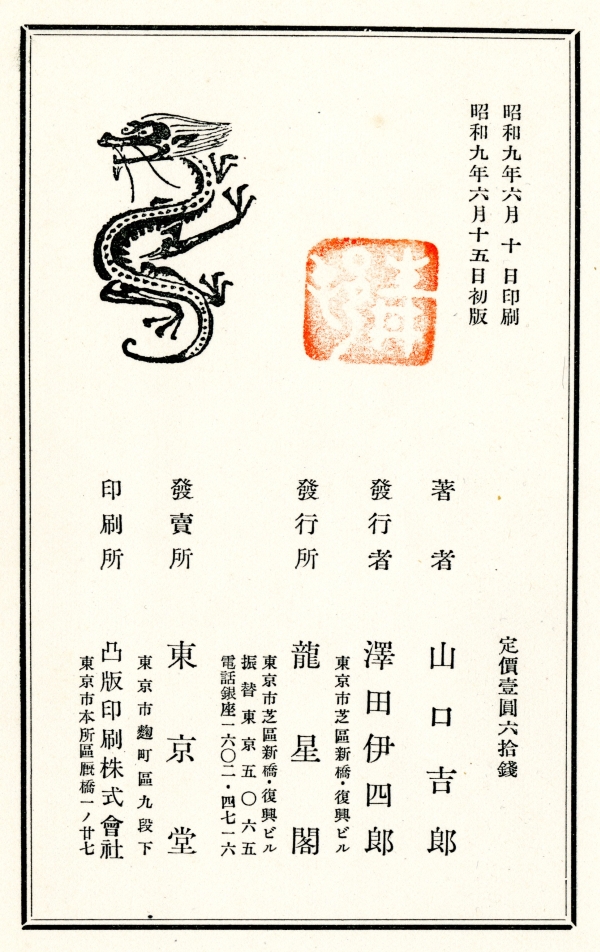 昭和九年六月十日印刷
昭和九年六月十五日初版
定價壹圓六拾錢
著者 山口吉郎
發行者 澤田伊四郎
東京市芝區新橋・復興ビル
發行所 龍星閣
東京市芝區新橋・復興ビル
振替東京五〇六五
電話銀座一六〇二・四七一六
發賣所 東京堂
東京市麴町區九段下
印刷所 凸版印刷株式會社
東京市本所區厩橋一ノ廿七